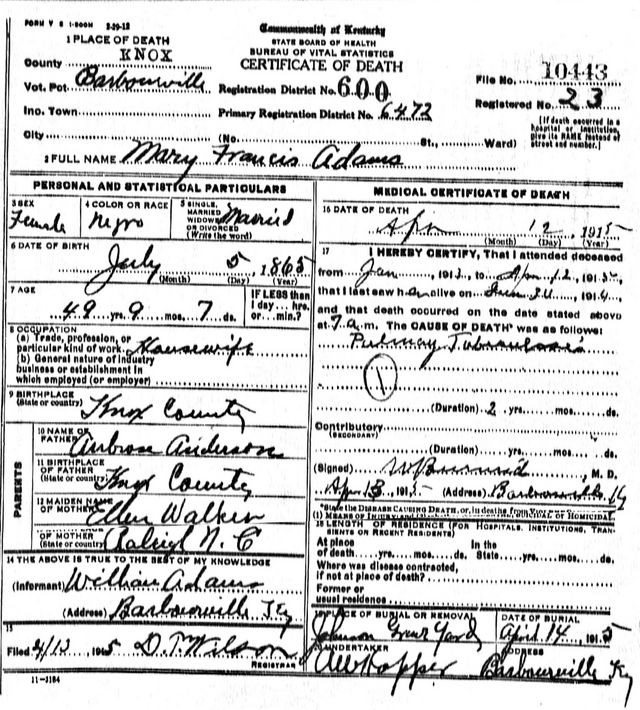 FORM V S 1-500M 3-29-12
Commonwealth of Kentucky
STATE BOARD OF HEALTH
BUREAU OF VITAL STATISTICS
CERTIFICATE OF DEATH
1 PLACE OF DEATH
County KNOX
Vot. Pct Barbourville
Ino. Town
City
Registration District No. 600
Primary Registration District No. 6472
(No. St., Ward)
File No. 10443
Registered No. 23
[If death occurred in a
hospital or institution,
give its NAME instead of
street and number.]
2 FULL NAME Mary Francis Adams
PERSONAL AND STATISTICAL PARTICULARS
3 SEX
Female
4 COLOR OR RACE
Negro
5 SINGLE,
MARRIED
WIDOWED
OR DIVORCED
(Write the word)
Married
6 DATE OF BIRTH
July 5, 1865
(Month) (Day) (Year)
7 AGE
49 yrs. 9 mos. 7 ds.
IF LESS than
1 day... hrs.
or... min.?
8 OCCUPATION
(a) Trade, profession, or
particular kind of work Housewife
(b) General nature of industry
business or establishment in
which employed (or employer)
9 BIRTHPLACE
(State or country)
Knox County
PARENTS
10 NAME OF
FATHER
Ambrose Anderson
11 BIRTHPLACE
OF FATHER
(State or country)
Knox County
12 MAIDEN NAME
OF MOTHER
Ellen Walker
OF MOTHER
(State or country)
Raleigh N. C
14 THE ABOVE IS TRUE TO THE BEST OF MY KNOWLEDGE
(Informant) William Adams
(Address) Barbourville Ky
15
Filed 4/13 1915 D. T. Wilson
REGISTRAR
11-3184
MEDICAL CERTIFICATE OF DEATH
16 DATE OF DEATH
Apr 12, 1915
(Month) (Day) (Year)
17 I HEREBY CERTIFY, That I attended deceased
from Jan, 1913, to Apr 12, 1915,
that I last saw h alive on, 1914,
and that death occurred on the date stated above
at 7 a.m. The CAUSE OF DEATH* was as follows:
Pulmary Tuberculosis
1
(Duration) 2 yrs. mos. ds.
Contributory
(SECONDARY)
(Duration) yrs. mos. ds.
(Signed) M. D.
Apr 13, 1915 (Address) Barbourville Ky
*State the DISEASE CAUSING DEATH, or, in deaths from
(1) MEANS OF INJURY HOMICIDAL.
18 LENGTH OF RESIDENCE (FOR HOSPITALS, INSTITUTIONS, TRAN-
SIENTS OR RECENT RESIDENTS)
At place
of death yrs. mos. ds.
In the
State yrs. mos. ds.
Where was disease contracted,
if not at place of death?
Former or
usual residence
PLACE OF BURIAL OR REMOVAL
Johnson Grave Yard
DATE OF BURIAL
April 14, 1915
UNDERTAKER
A W Hopper
ADDRESS
Barbourville Ky